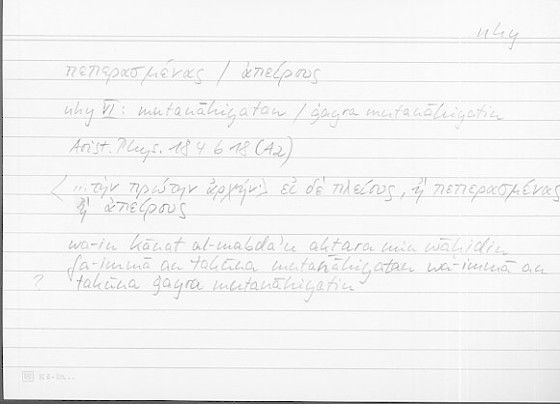 nhy
πεπερασμένας / ἀπείρους
nhy VI: mutanāhiyatan / ġayra mutanāhiyatin
Arist. Phys. 184 b 18 (A2)
〈...τὴν πρώτην ἀρχήν〉 εἰ δὲ πλείους, ἢ πεπερασμένας
ἢ ἀπείρους
wa-in kānat al-mabdaʾu aktara min wāḥidin
fa-immā an takūna mutanāhiyatan wa-immā an
? takūna ġayra mutanāhiyatin